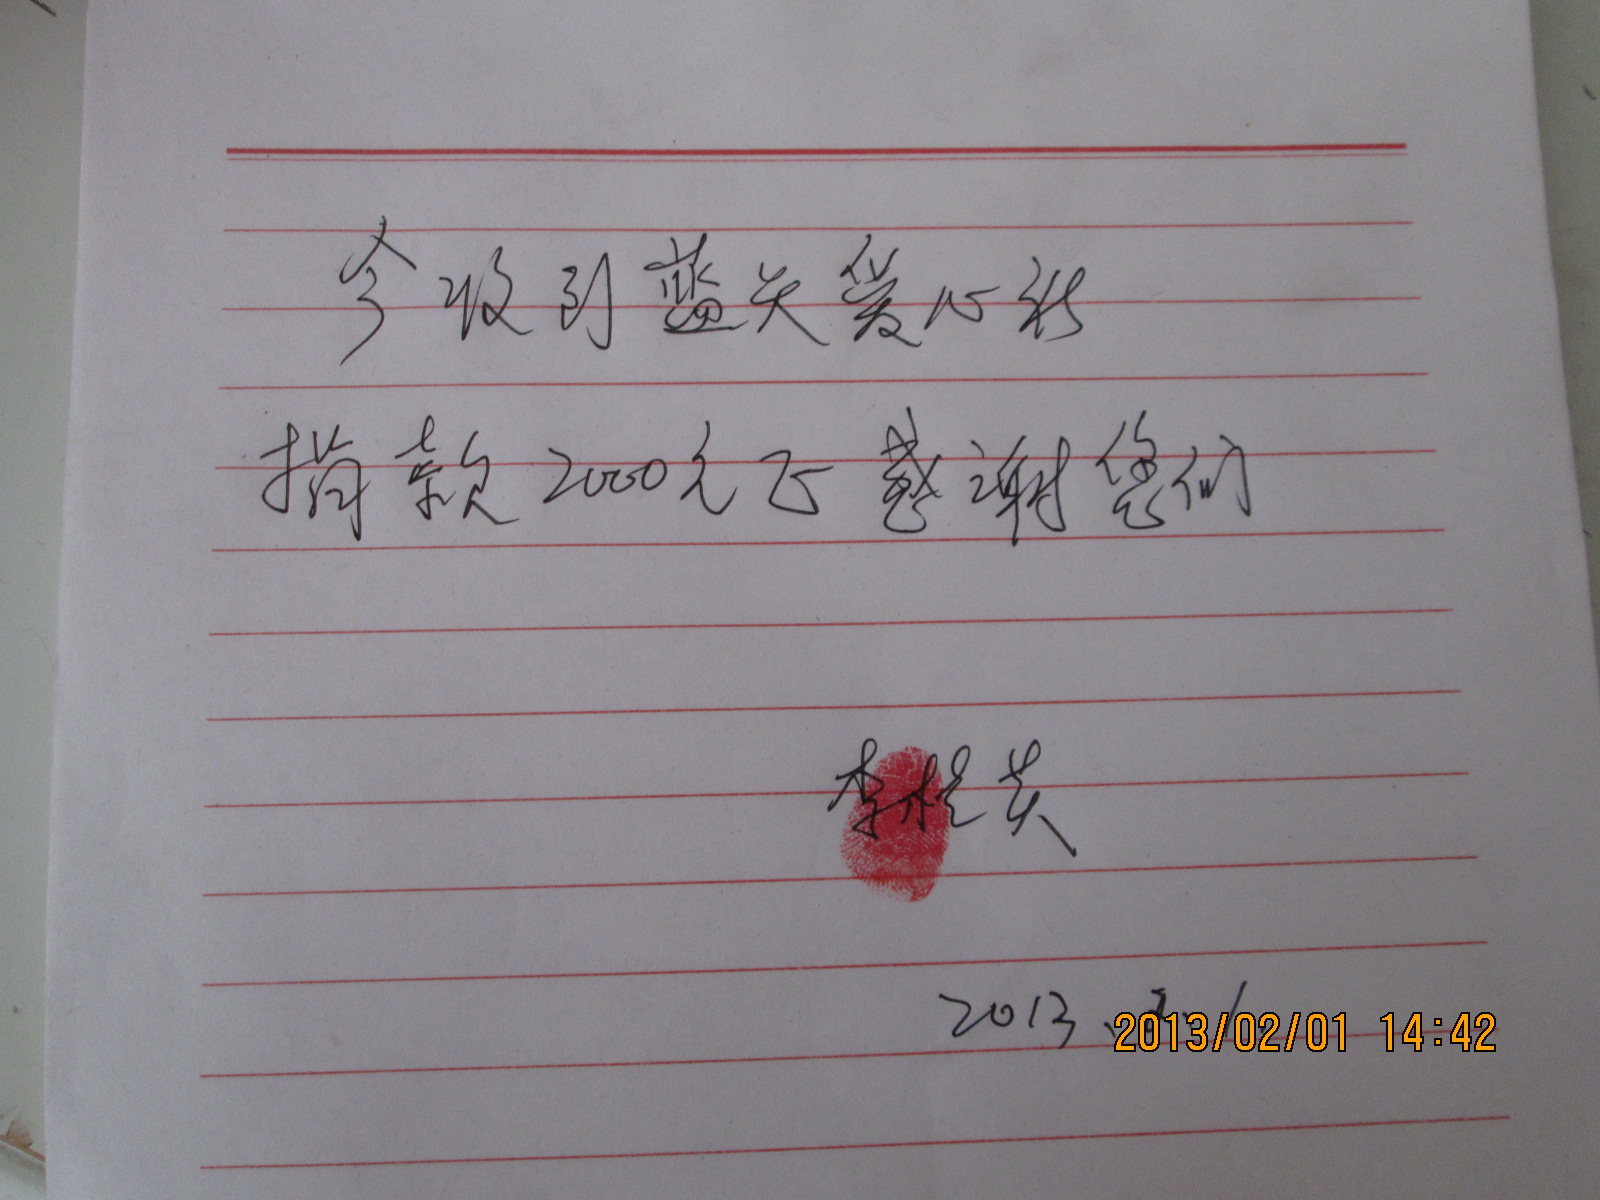 今收到蓝天爱心社
捐款2000元正 感谢您们
李桂英
2013.2.1
2013/02/01 14:42